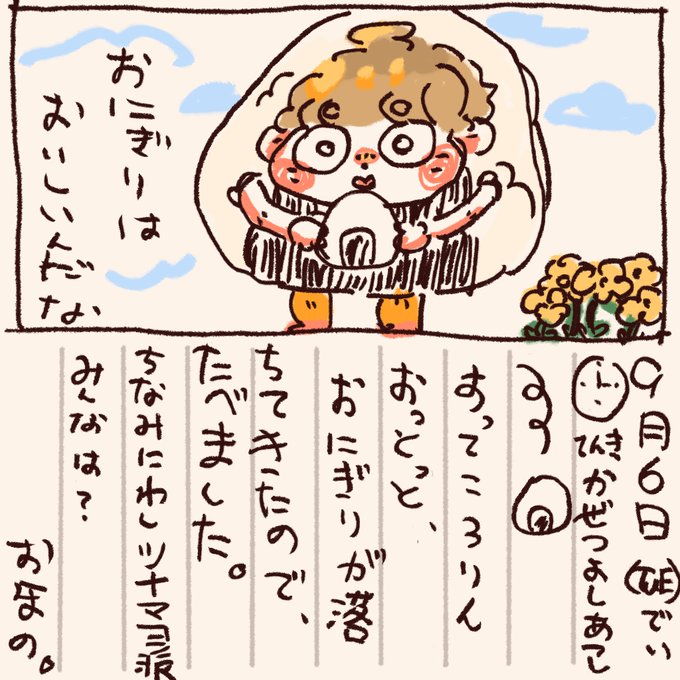 おにぎりは
おいしいんだな
9月6日 でい
てんき かぜつよし
すってころりん
おっとっと、
おにぎりが落
ちてきたので、
たべました。
ちなみにわしツナマヨ派
みんなは?